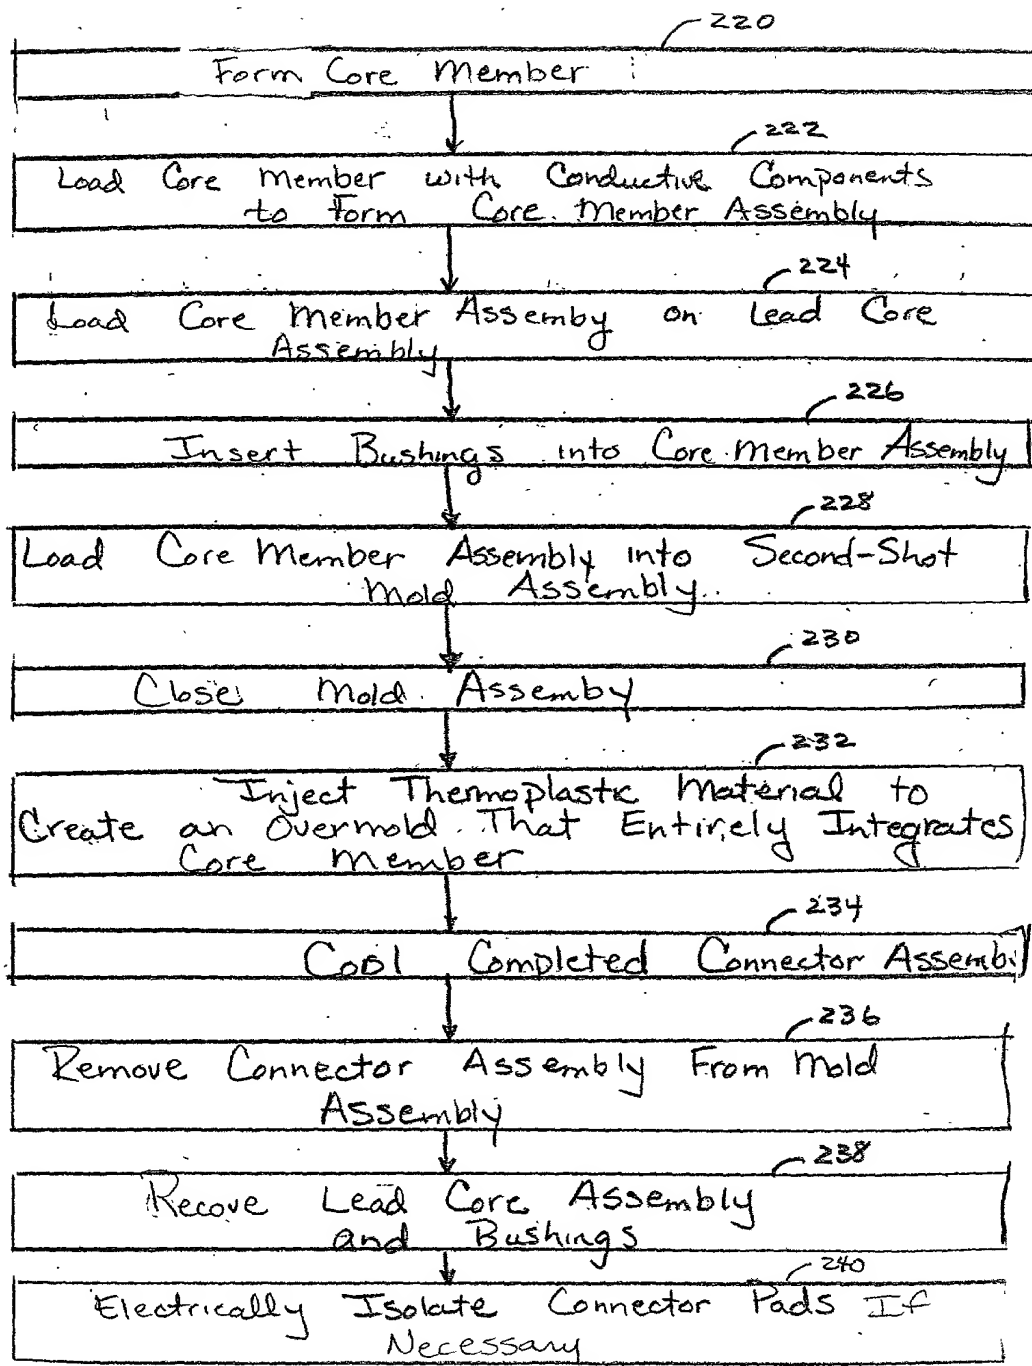 220
Form Core Member
222
Load Core Member with Conductive Components
to Form Core Member Assembly
224
Load Core Member Assemby on Lead Core
Assembly
226
Insert Bushings into Core Member Assembly
228
Load Core Member Assembly into Second-Shot
Mold Assembly
230
Close Mold Assemby
232
Inject Thermoplastic Material to
Create an Overmold That Entirely Integrates
Core Member
234
Cool Completed Connector Assembl
236
Remove Connector Assembly From Mold
Assembly
238
Recove Lead Core Assembly
and Bushings
240
Electrically Isolate Connector Pads If
Necessary